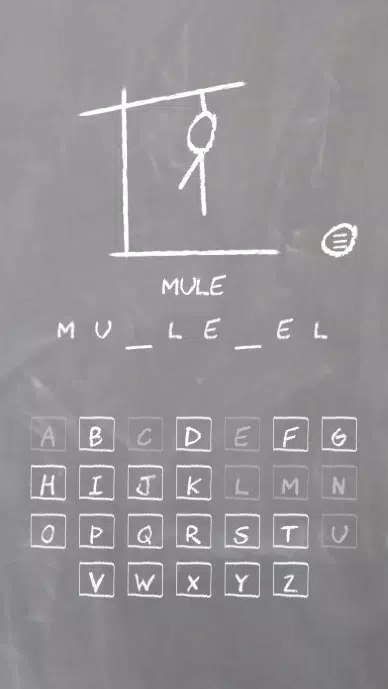 MULE
M U _ L E _ E L
A B C D E F G
H I J K L M N
O P Q R S T U
V W X Y Z